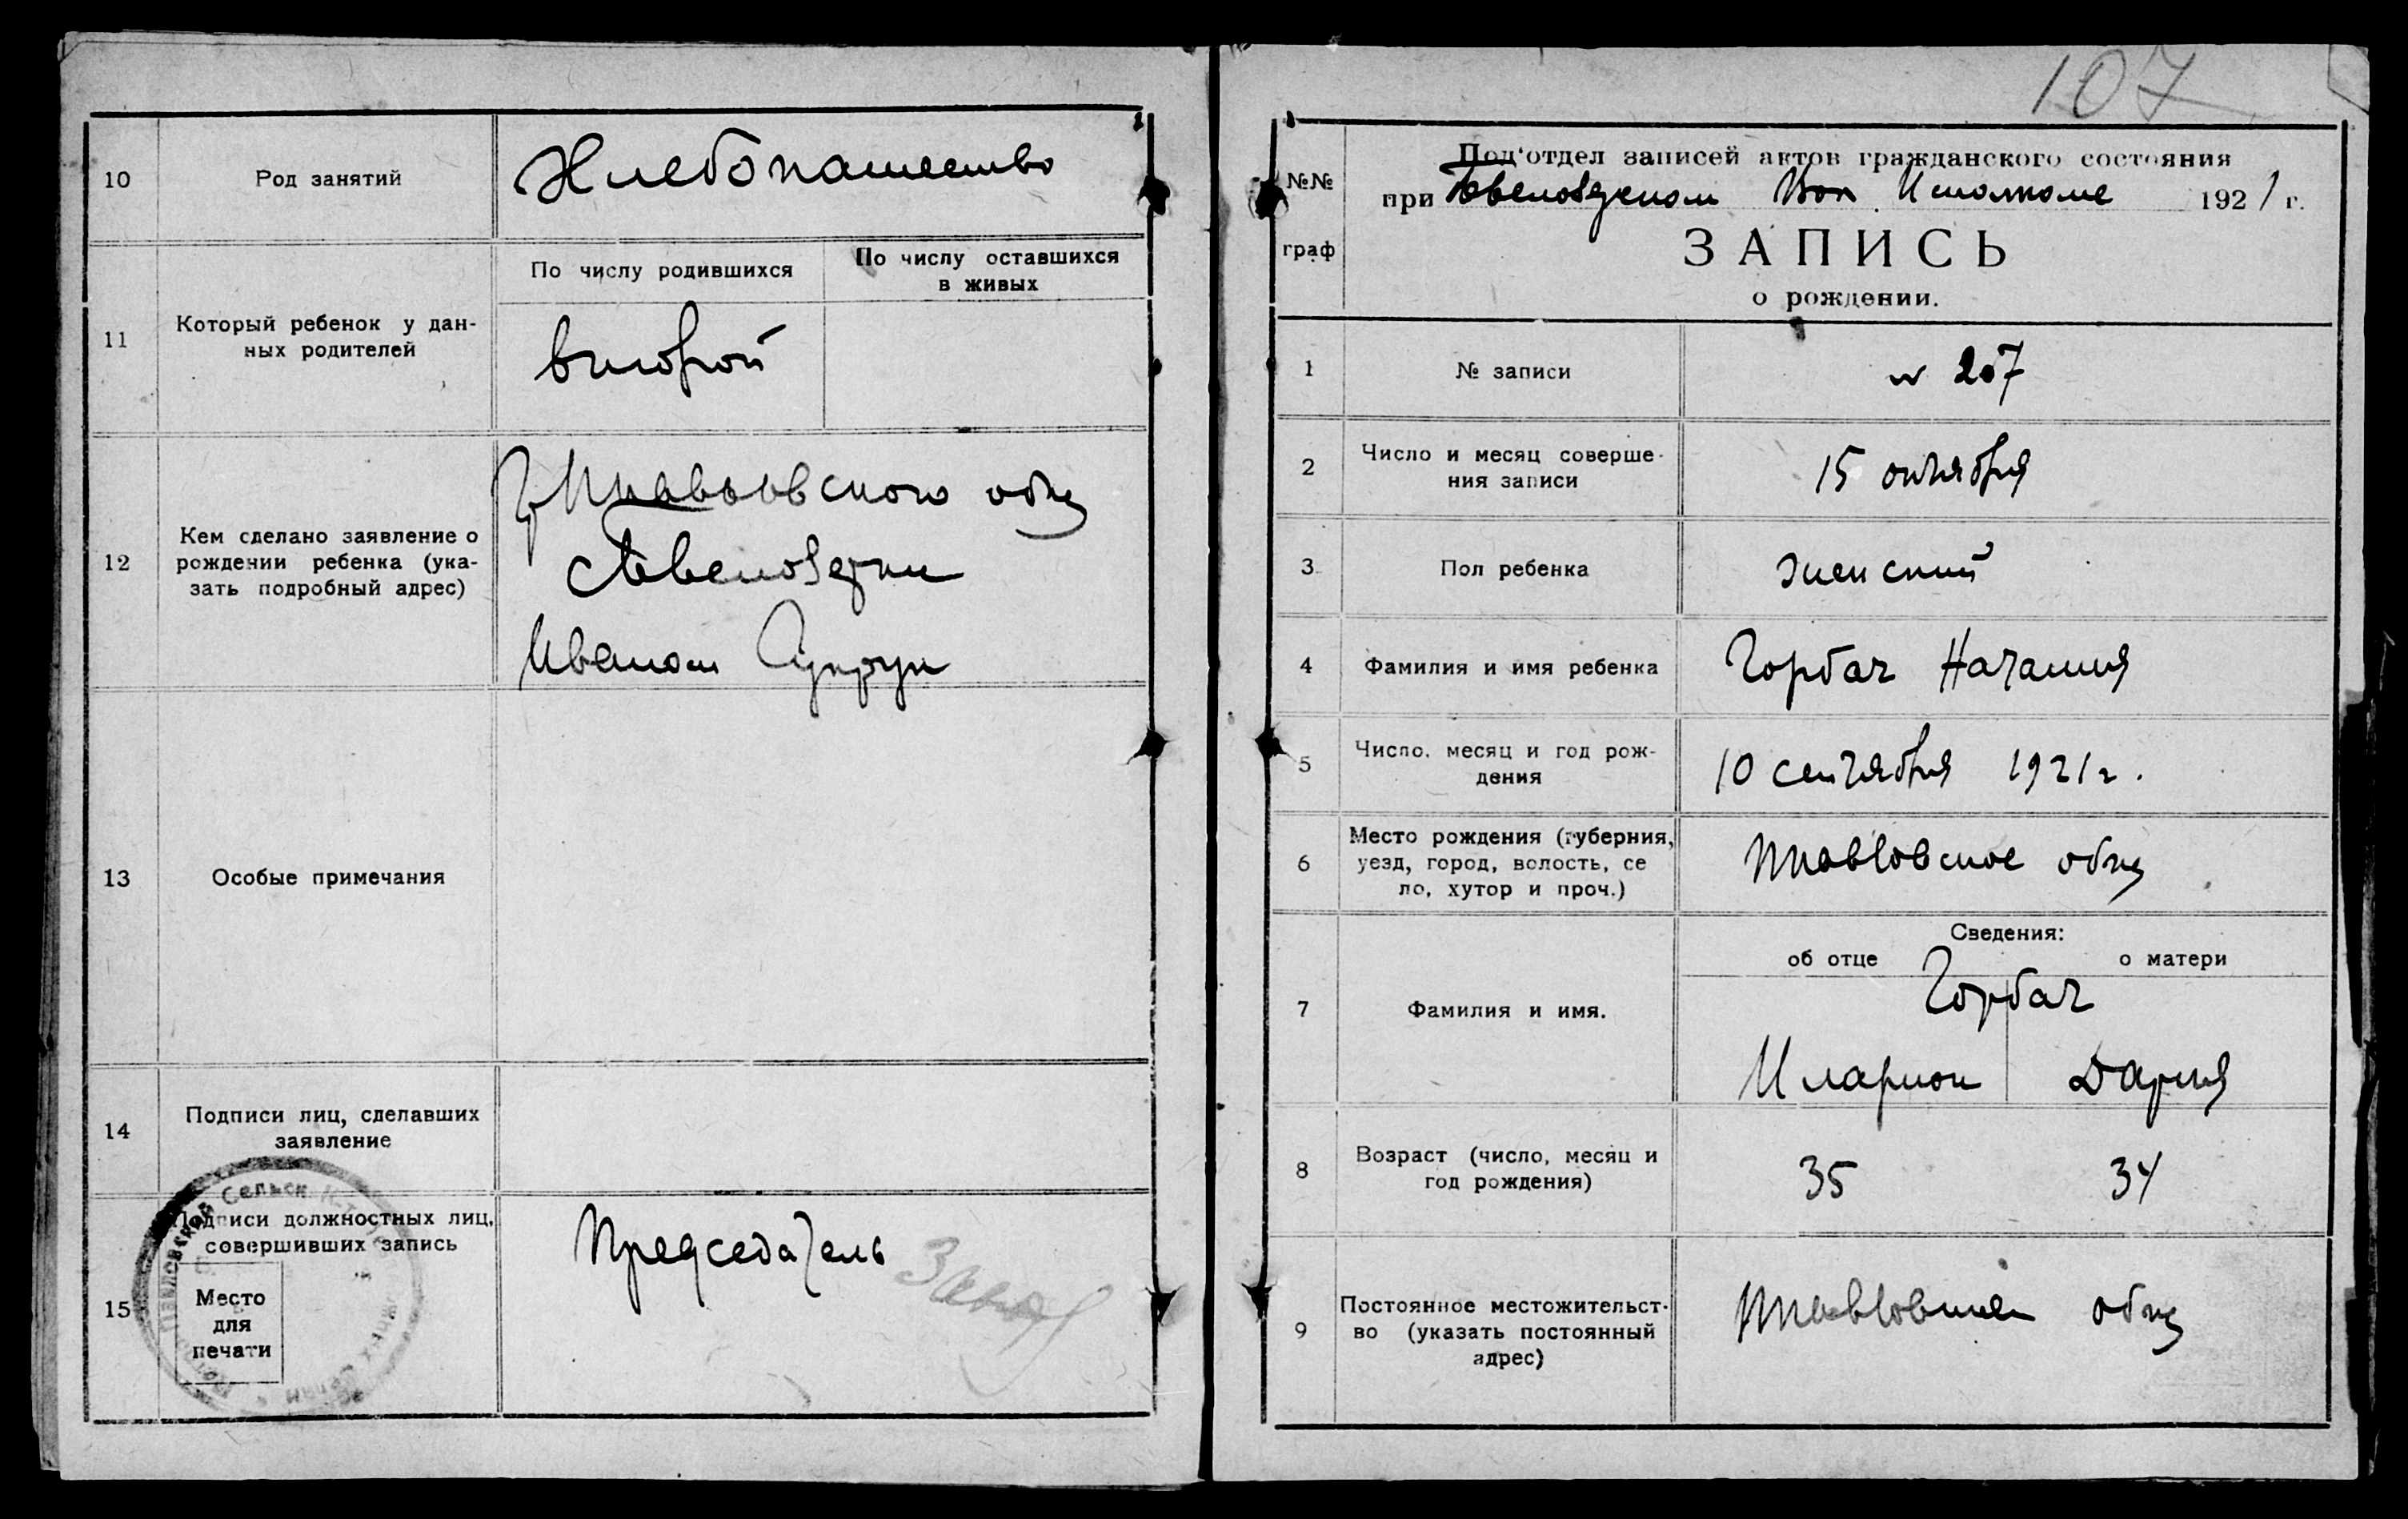 10
Род занятий
Хлебопашество
11
Который ребенок у дан-
ных родителей
По числу родившихся
По числу оставшихся
в живых
второй
12
Кем сделано заявление о
рождении ребенка (ука-
зать подробный адрес)
общ
Иваном Супрун
13
Особые примечания
14
Подписи лиц, сделавших
заявление
15
Подписи должностных лиц,
совершивших запись
Место
для
печати
Председатель
Сельск.
107
№№
граф
Под'отдел записей актов гражданского состояния
при Вол. Исполкоме 1921 г.
ЗАПИСЬ
о рождении.
1
№ записи
№ 207
2
Число и месяц соверше-
ния записи
15 октября
3
Пол ребенка
женский
4
Фамилия и имя ребенка
Горбач Наталия
5
Число, месяц и год рож-
дения
10 сентября 1921 г.
6
Место рождения (губерния,
уезд, город, волость, се
ло, хутор и проч.)
Павловское общ
7
Фамилия и имя.
Сведения:
об отце
о матери
Горбач
Иларион
Дария
8
Возраст (число, месяц и
год рождения)
35
34
9
Постоянное местожительст-
во (указать постоянный
адрес)
общ